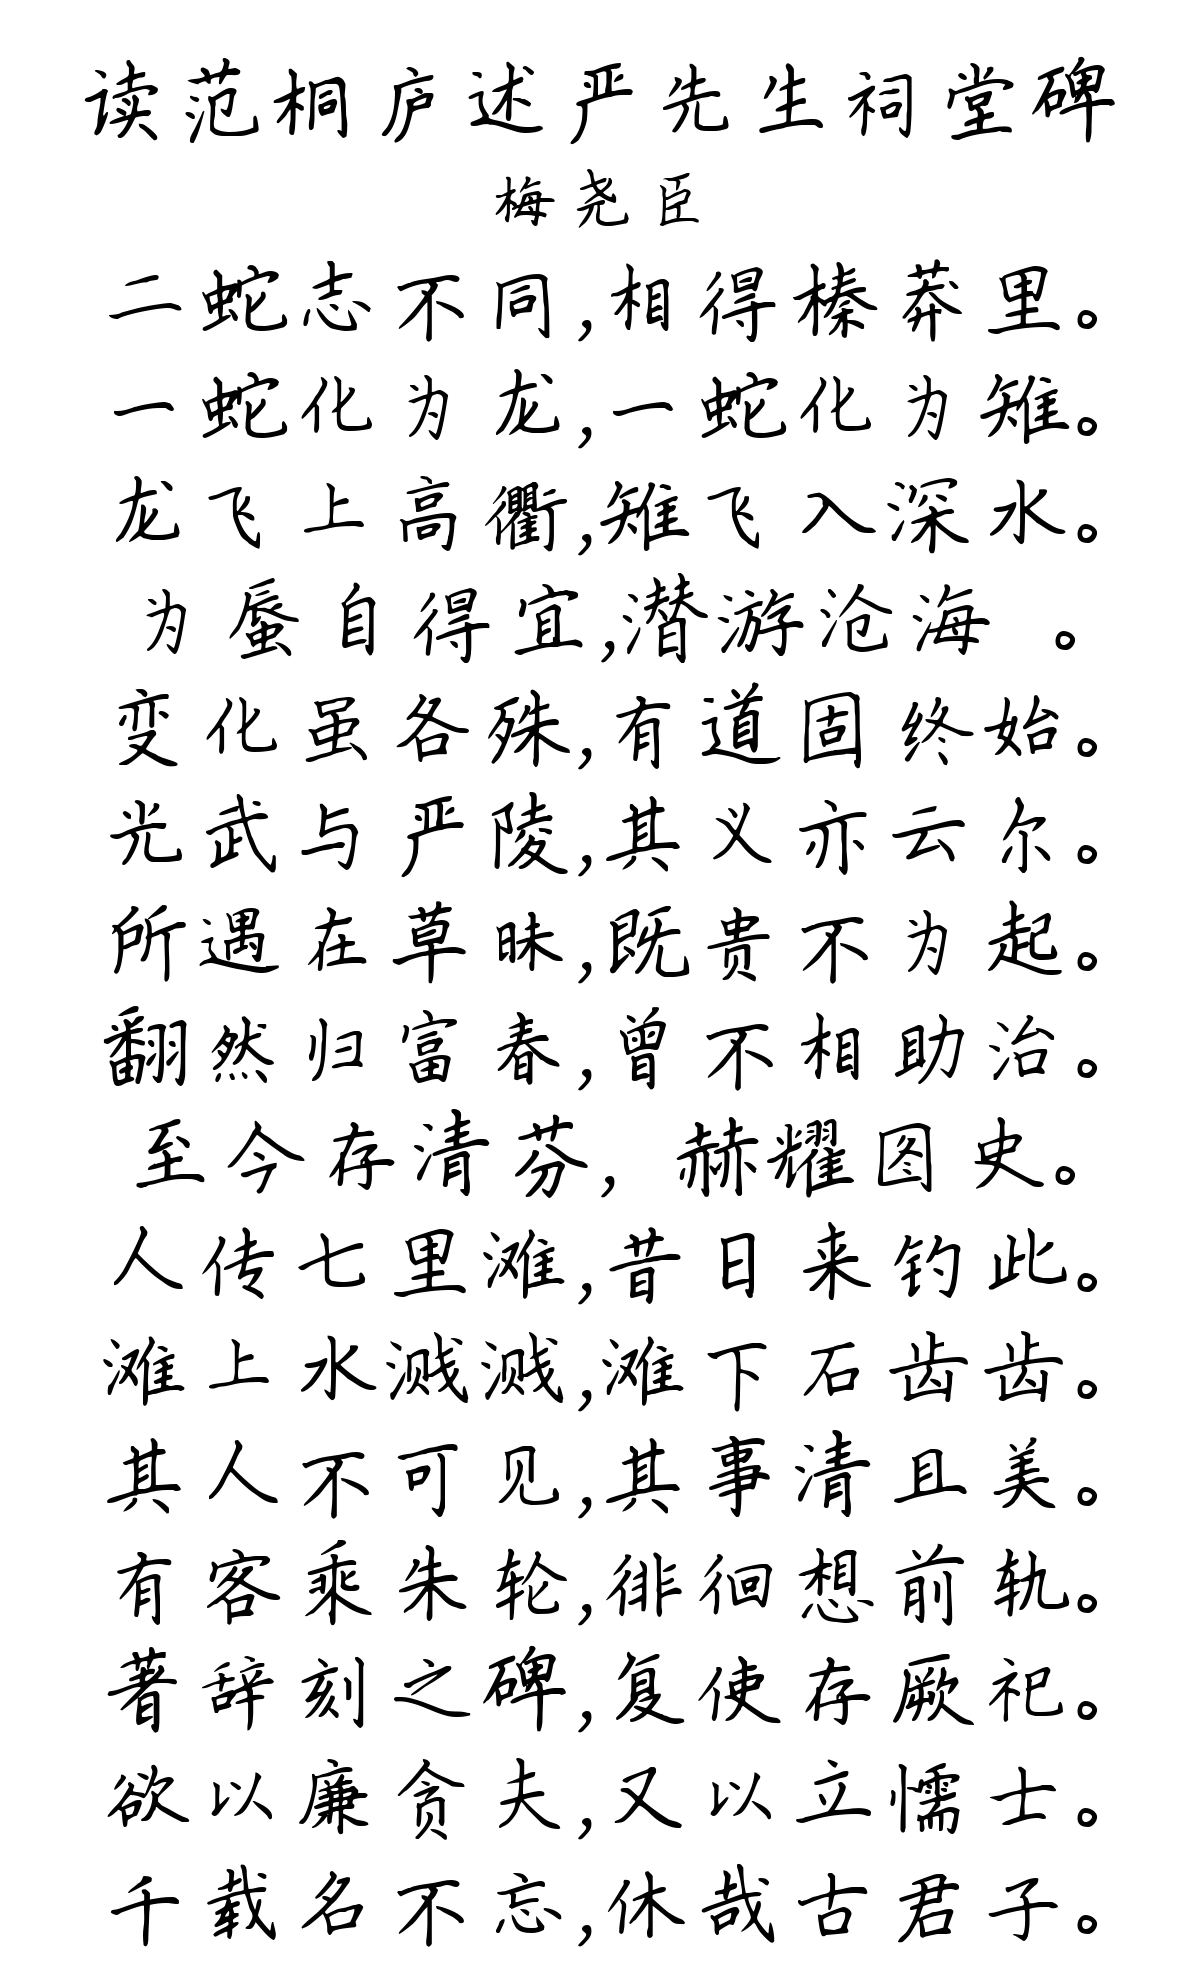 读范桐庐述严先生祠堂碑
梅尧臣
二蛇志不同,相得榛莽里。
一蛇化为龙,一蛇化为雉。
龙飞上高衢,雉飞入深水。
为蜃自得宜,潜游沧海 。
变化虽各殊,有道固终始。
光武与严陵,其义亦云尔。
所遇在草昧,既贵不为起。
翻然归富春,曾不相助治。
至今存清芬, 赫耀图史。
人传七里滩,昔日来钓此。
滩上水溅溅,滩下石齿齿。
其人不可见,其事清且美。
有客乘朱轮,徘徊想前轨。
著辞刻之碑,复使存厥祀。
欲以廉贪夫,又以立懦士。
千载名不忘,休哉古君子。